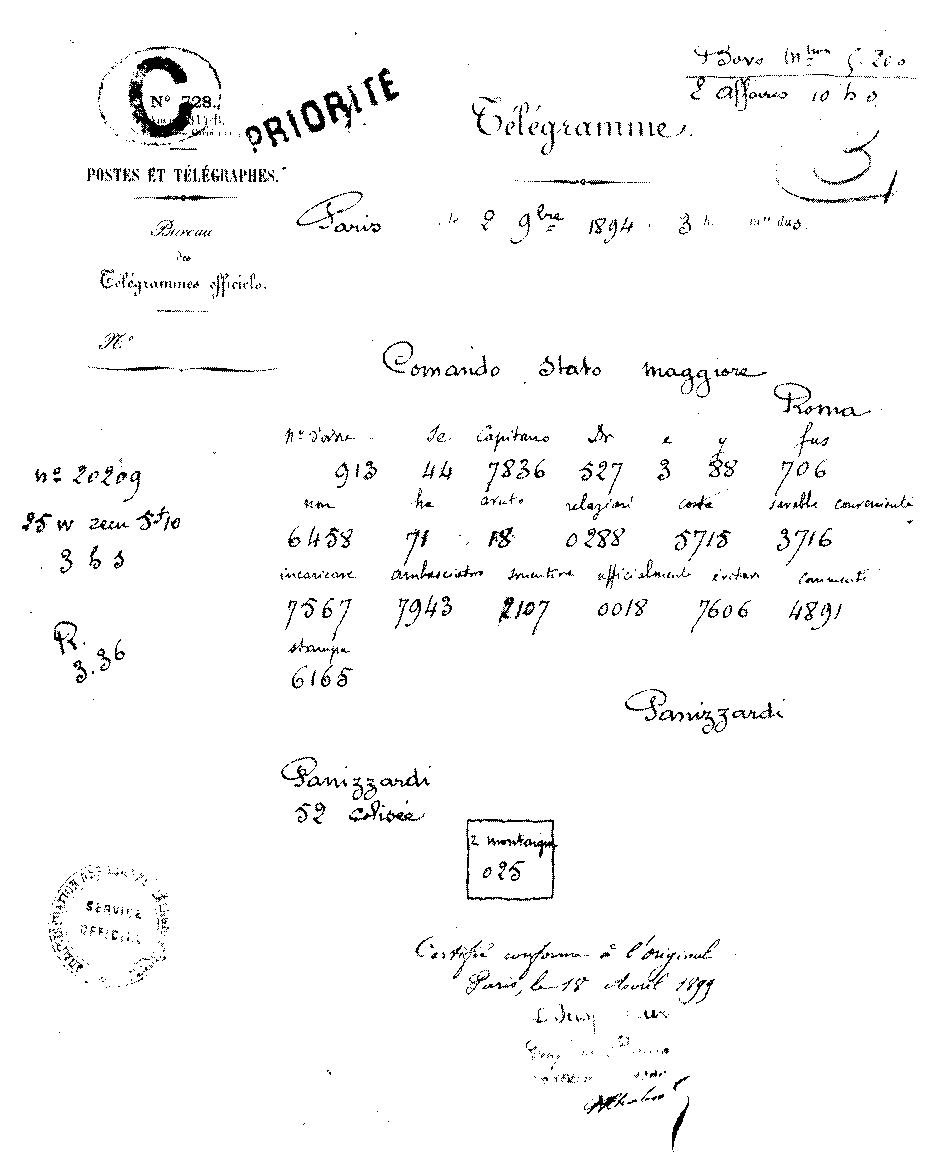 C
N° 728.
PRIORITÉ
2 Affaires 10 h 0
Télégramme.
3
POSTES ET TÉLÉGRAPHES.
Bureau
des
Télégrammes officiels.
N°
Paris le 2 9bre 1894. 3 h.
Comando Stato maggiore
Roma
n° d'ordre Se Capitano Dr e y fus
913 44 7836 527 3 88 706
non ha avuto relazioni costà sarebbe conveniente
6458 71 18 0288 5715 3716
incaricare ambasciatore smentire ufficialmente evitare commenti
7567 7943 2107 0018 7606 4891
stampa
6165
n° 20209
3 h s
R.
3.36
Panizzardi
Panizzardi
52 colisée
2 montaigne
025
SERVICE
OFFICIEL
Certifié conforme à l'original
Paris, le 18 Avril 1899